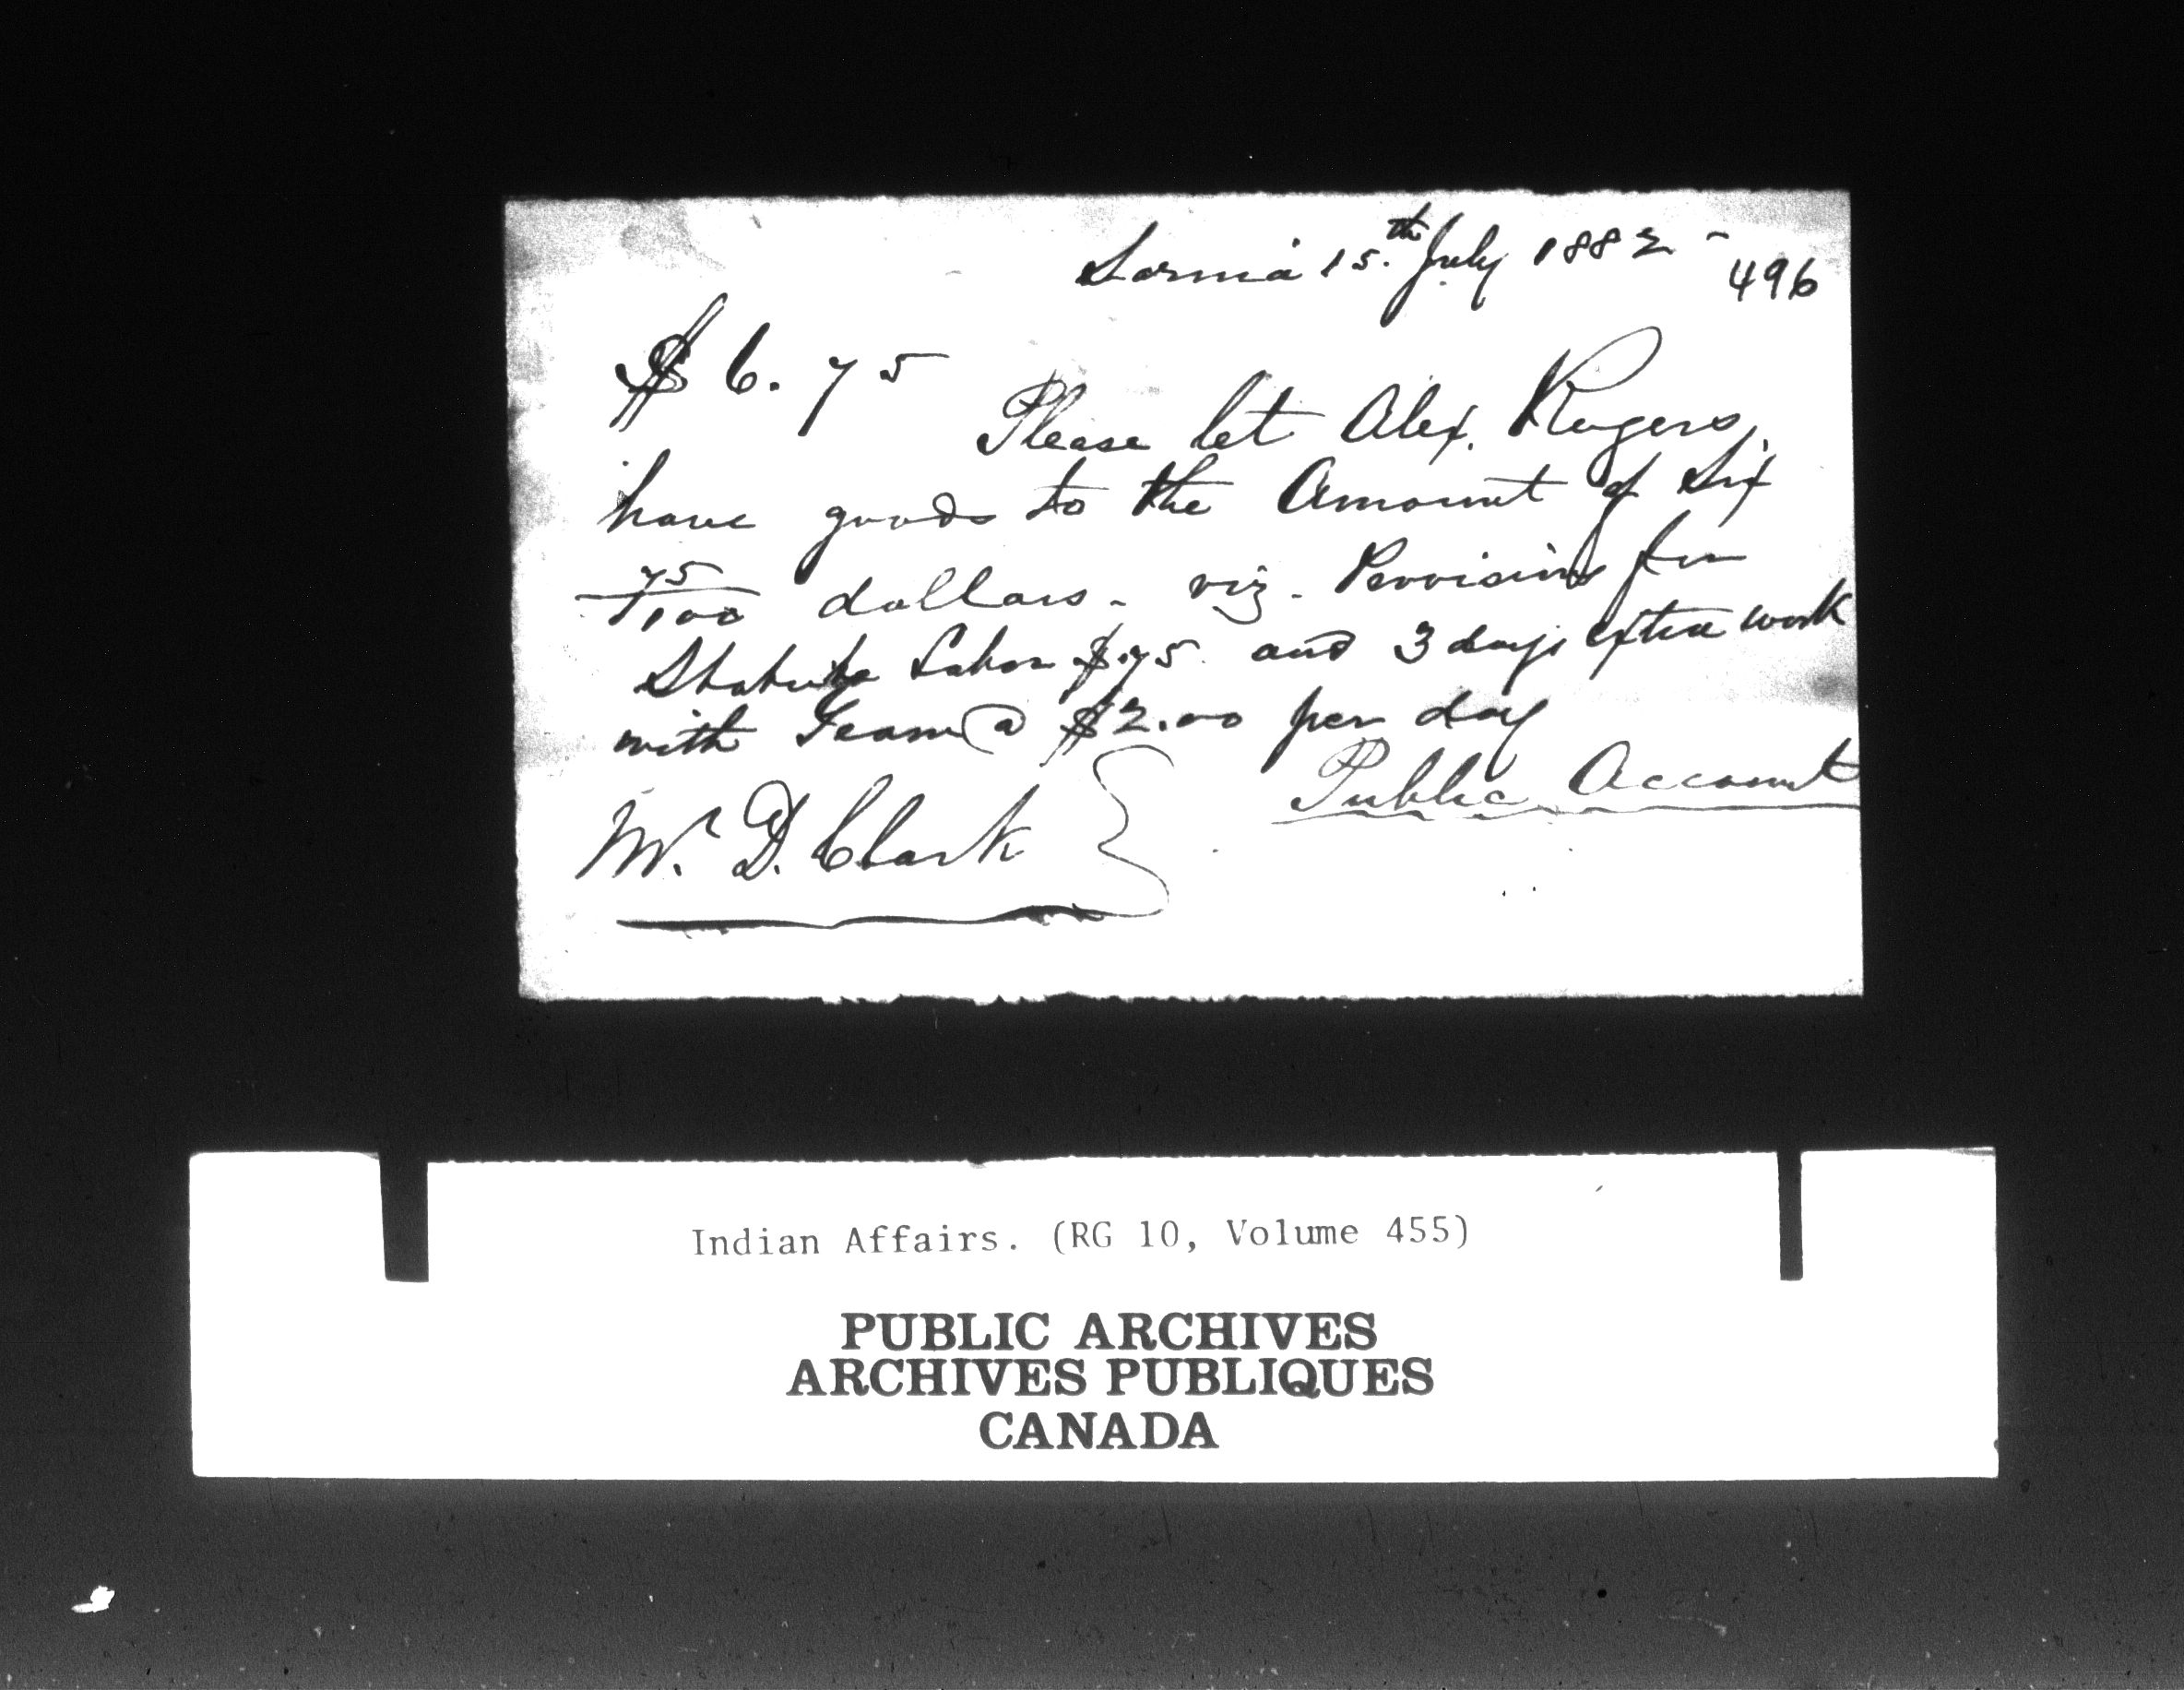 Sarnia 15.th July 1882 -
496
$6.75
Please let Alex. Rogers,
have goods to the Amount of Six
75/100 dollars - viz - Provisions for
Statute Labor $.75 and 3 days extra work
with Team @ $2.00 per day
Public Account
Mr. D. Clark
Indian Affairs. (RG 10, Volume 455)
PUBLIC ARCHIVES
ARCHIVES PUBLIQUES
CANADA